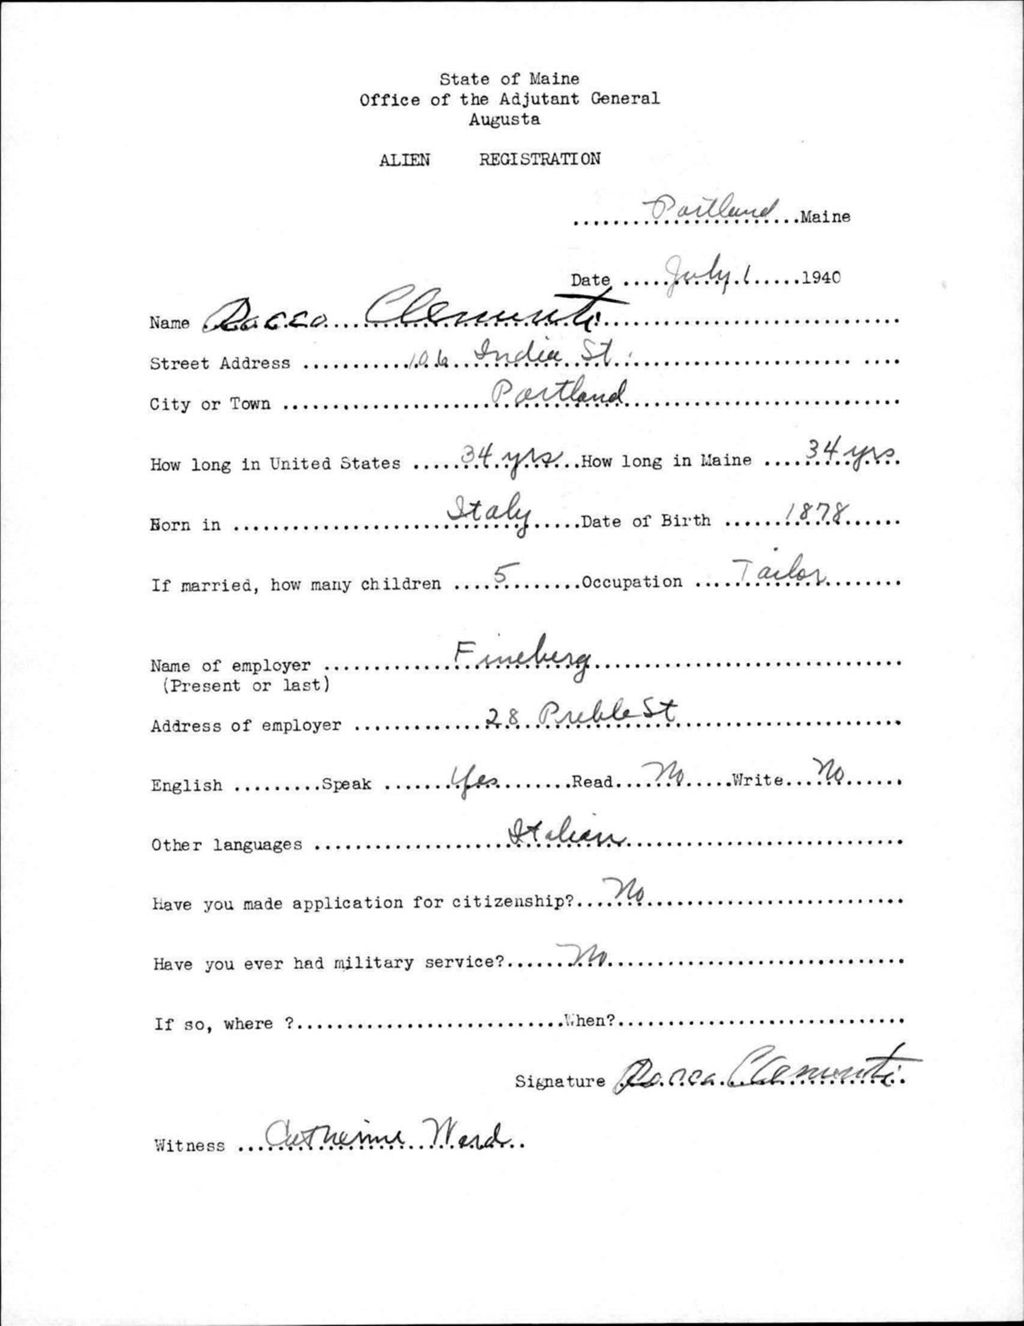 State of Maine
Office of the Adjutant General
Augusta
ALIEN REGISTRATION
Portland Maine
Date July 1 1940
Name Rocco Clementi
Street Address 106 India St.
City or Town Portland
How long in United States 34 yrs How long in Maine 34 yrs
Born in Italy Date of Birth 1878
If married, how many children 5 Occupation Tailor
Name of employer Fineberg
(Present or last)
Address of employer 28 Preble St
English Speak Yes Read No Write No
Other languages Italian
Have you made application for citizenship? No
Have you ever had military service? No
If so, where ? When?
Signature Rocco Clementi
Witness Catherine Ward